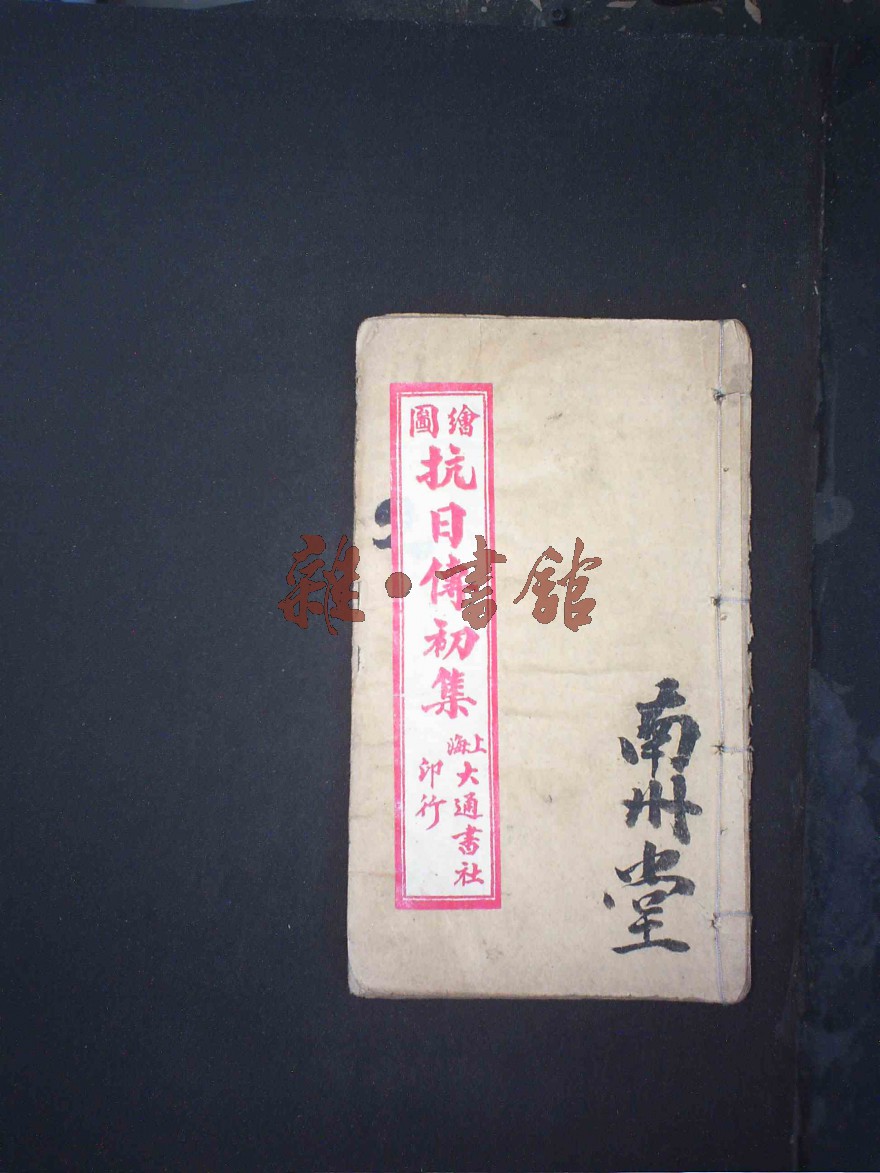 繪圖
抗日傳初集
上海
大通書社
印行
南州堂
雜·書館